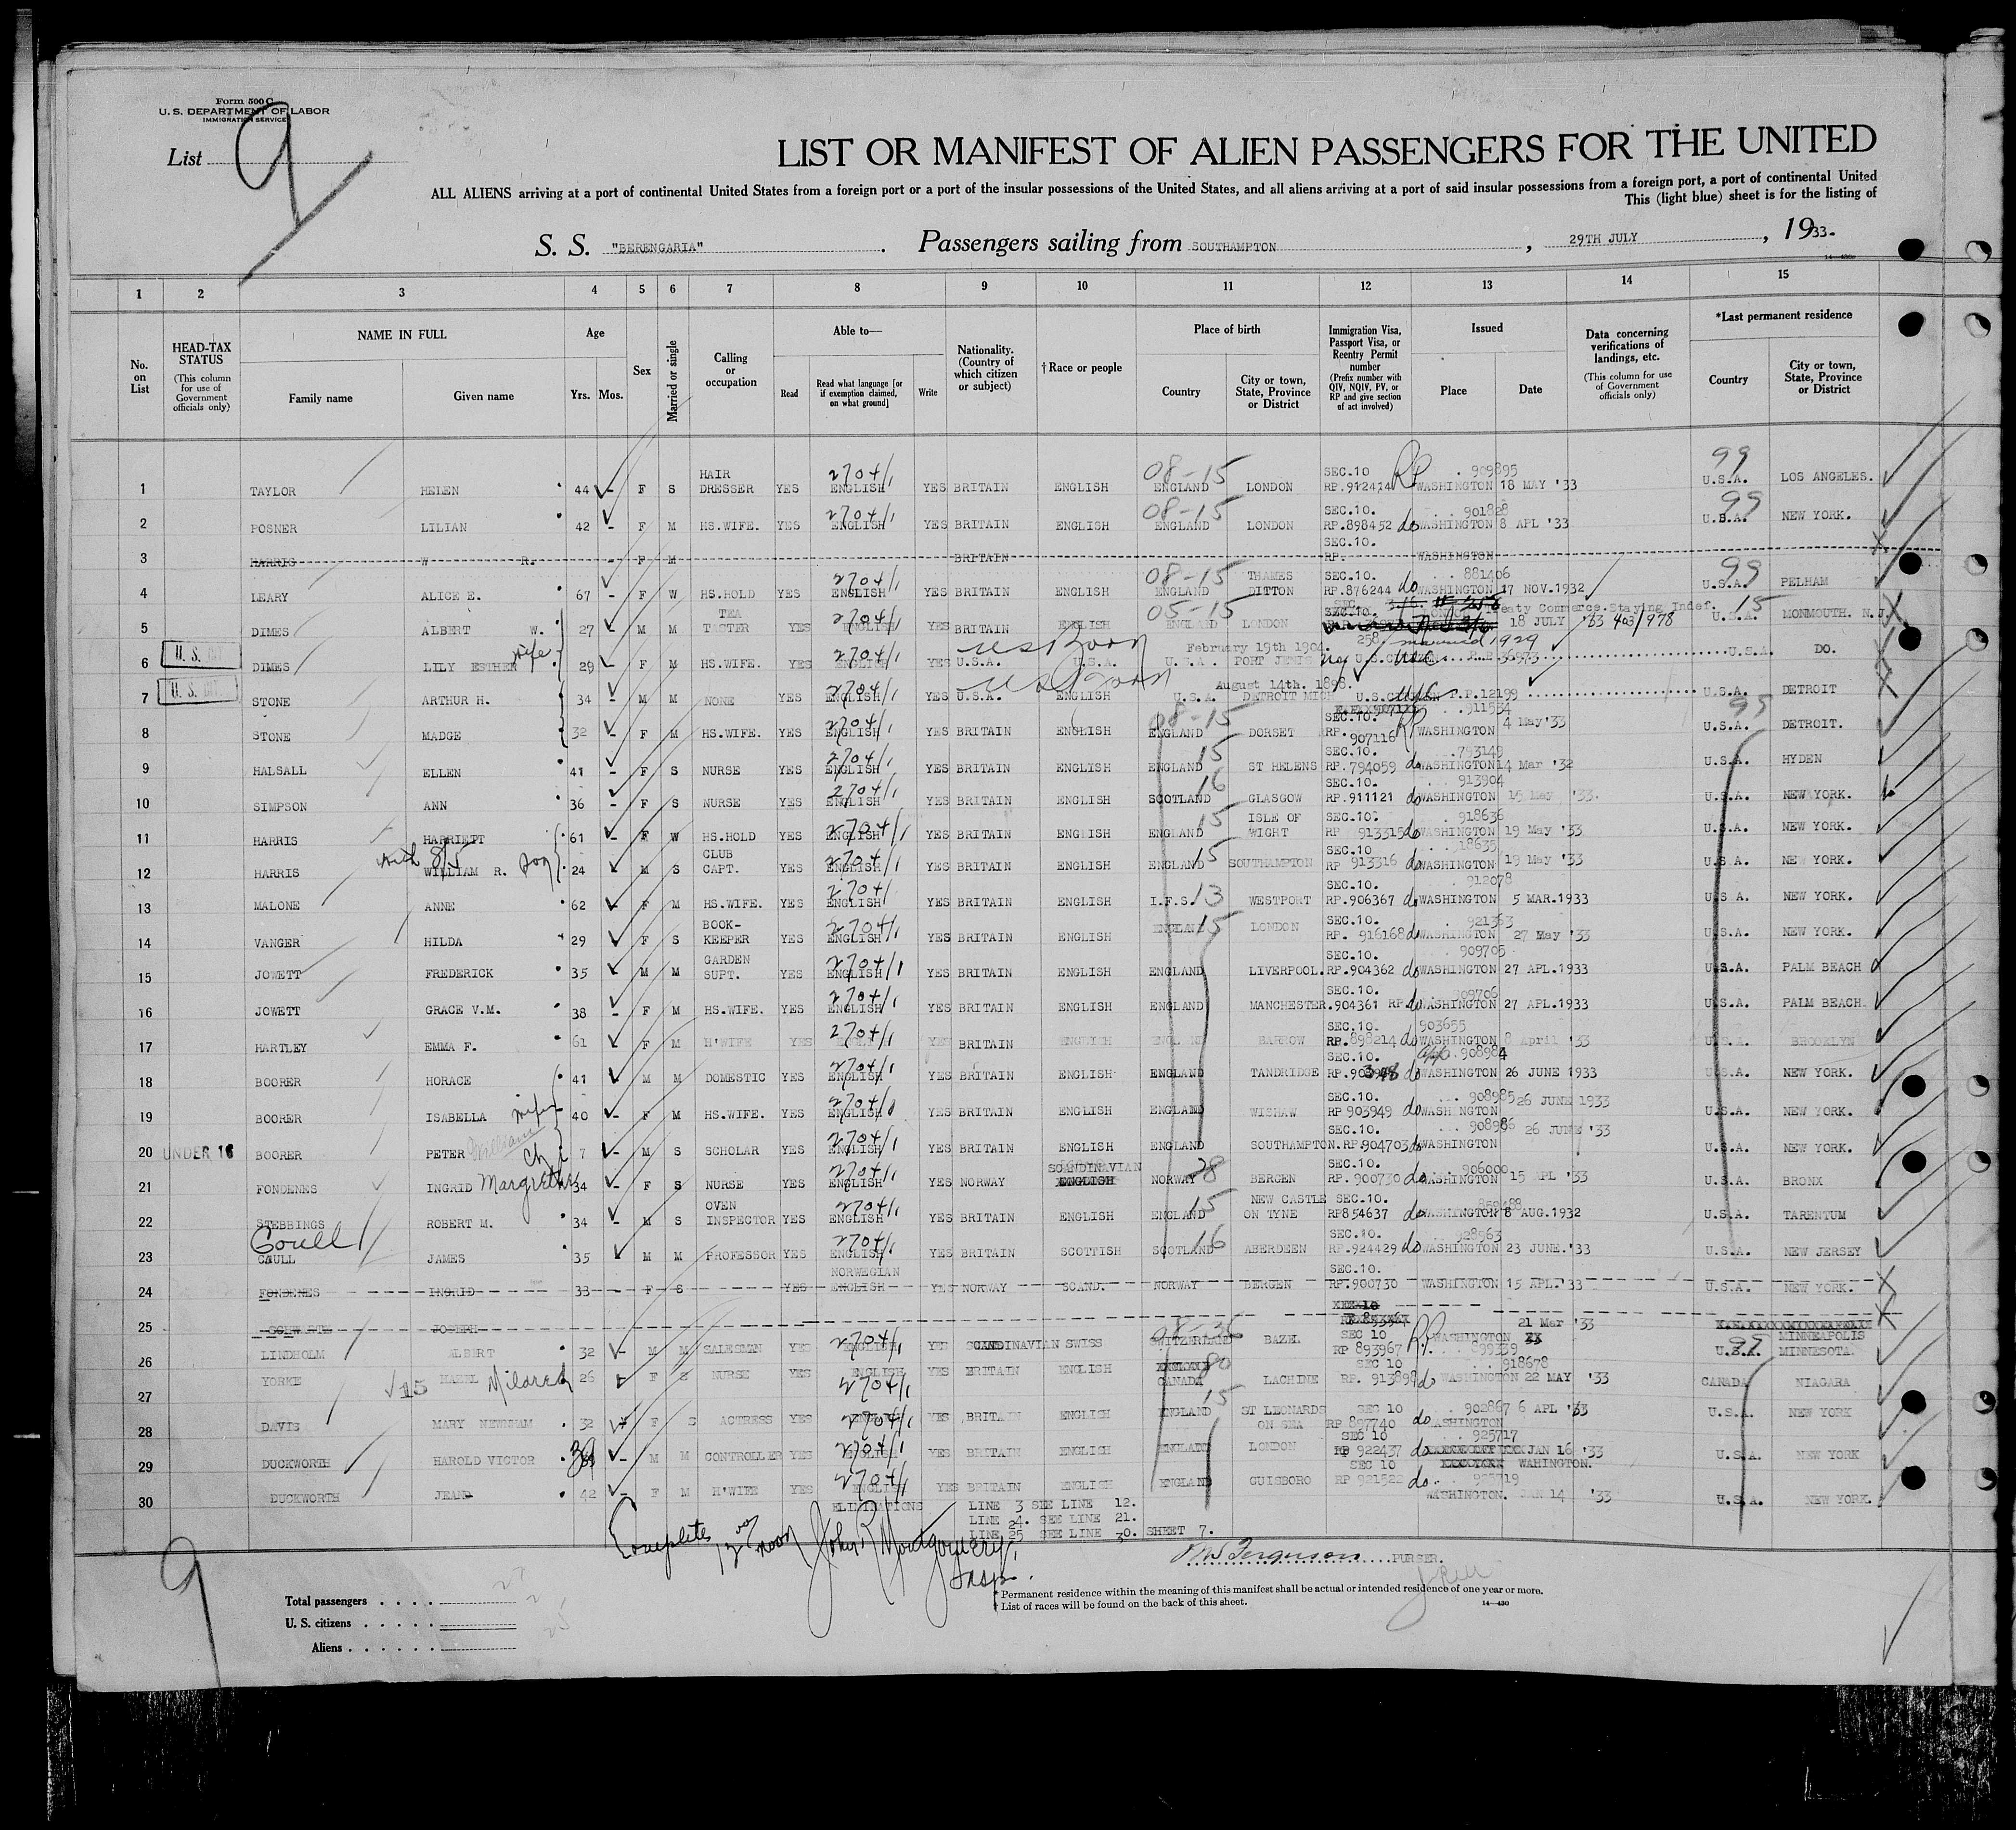 Form 500 C
U. S. DEPARTMENT OF LABOR
IMMIGRATION SERVICE
List 9
LIST OR MANIFEST OF ALIEN PASSENGERS FOR THE UNITED
ALL ALIENS arriving at a port of continental United States from a foreign port or a port of the insular possessions of the United States, and all aliens arriving at a port of said insular possessions from a foreign port, a port of continental United
This (light blue) sheet is for the listing of
S. S. "BERENGARIA". Passengers sailing from SOUTHAMPTON, 29TH JULY, 1933-
1 2 3 4 5 6 7 8 9 10 11 12 13 14 15
No. on List
HEAD-TAX STATUS (This column for use of Government officials only)
NAME IN FULL Family name Given name
Age Yrs. Mos.
Sex
Married or single
Calling or occupation
Able to— Read Read what language [or if exemption claimed, on what ground] Write
Nationality. (Country of which citizen or subject)
†Race or people
Place of birth Country City or town, State, Province or District
Immigration Visa, Passport Visa, or Reentry Permit number (Prefix number with QIV, NQIV, PV, or RP and give section of act involved)
Issued Place Date
Data concerning verifications of landings, etc. (This column for use of Government officials only)
*Last permanent residence Country City or town, State, Province or District
1 TAYLOR HELEN 44 - F S HAIR DRESSER YES ENGLISH YES BRITAIN ENGLISH 08-15 ENGLAND LONDON SEC.10 RP.912414 RP 909895 WASHINGTON 18 MAY '33 99 U.S.A. LOS ANGELES.
2 POSNER LILIAN 42 - F M HS.WIFE. YES ENGLISH YES BRITAIN ENGLISH 08-15 ENGLAND LONDON SEC.10. RP.898452 do 901828 WASHINGTON 8 APL '33 99 U.S.A. NEW YORK.
3 HARRIS W R. - F M BRITAIN SEC.10. RP. WASHINGTON
4 LEARY ALICE E. 67 - F W HS.HOLD YES ENGLISH YES BRITAIN ENGLISH 08-15 ENGLAND THAMES DITTON SEC.10. RP.876244 do 881406 WASHINGTON 17 NOV.1932 99 U.S.A. PELHAM
5 DIMES ALBERT W. 27 - M M TEA TASTER YES ENGLISH YES BRITAIN ENGLISH 05-15 ENGLAND LONDON SEC.10. Treaty Commerce.Staying Indef. 18 JULY '33 403/978 15 U.S.A. MONMOUTH. N.J.
6 U. S. DIMES LILY ESTHER wife 29 - F M HS.WIFE. YES ENGLISH YES U.S.A. U.S.A. February 19th 1904. U.S.A. PORT U.S.CITIZEN P.P.36973 U.S.A. DO.
7 U. S. STONE ARTHUR H. 34 - M M NONE YES ENGLISH YES U.S.A. ENGLISH August 14th. 1898. U.S.A. DETROIT MICH U.S.CITIZEN P.P.12199 U.S.A. DETROIT
8 STONE MADGE 32 - F M HS.WIFE. YES ENGLISH YES BRITAIN ENGLISH 08-15 ENGLAND DORSET SEC.10. RP. 907116 RP 911534 WASHINGTON 4 May'33 99 U.S.A. DETROIT.
9 HALSALL ELLEN 41 - F S NURSE YES ENGLISH YES BRITAIN ENGLISH 15 ENGLAND ST HELENS SEC.10. RP.794059 do 793149 WASHINGTON 14 Mar '32 U.S.A. HYDEN
10 SIMPSON ANN 36 - F S NURSE YES ENGLISH YES BRITAIN ENGLISH 16 SCOTLAND GLASGOW SEC.10. RP.911121 do 913904 WASHINGTON 15 May '33. U.S.A. NEW YORK.
11 HARRIS HARRIETT 61 - F W HS.HOLD YES ENGLISH YES BRITAIN ENGLISH 15 ENGLAND ISLE OF WIGHT SEC.10. RP 913315 do 918636 WASHINGTON 19 May '33 U.S.A. NEW YORK.
12 HARRIS WILLIAM R. Son 24 - M S CLUB CAPT. YES ENGLISH YES BRITAIN ENGLISH ENGLAND 15 SOUTHAMPTON SEC.10 RP 913316 do 918635 WASHINGTON 19 May '33 U.S.A. NEW YORK.
13 MALONE ANNE 62 - F M HS.WIFE. YES ENGLISH YES BRITAIN ENGLISH I.F.S. 13 WESTPORT SEC.10. RP.906367 do 912078 WASHINGTON 5 MAR.1933 U.S.A. NEW YORK.
14 VANGER HILDA 29 - F S BOOK-KEEPER YES ENGLISH YES BRITAIN ENGLISH ENGLAND 15 LONDON SEC.10. RP. 916168 do 921363 WASHINGTON 27 May '33 U.S.A. NEW YORK.
15 JOWETT FREDERICK 35 - M M GARDEN SUPT. YES ENGLISH YES BRITAIN ENGLISH ENGLAND LIVERPOOL. SEC.10. RP.904362 do 909705 WASHINGTON 27 APL.1933 U.S.A. PALM BEACH
16 JOWETT GRACE V.M. 38 - F M HS.WIFE. YES ENGLISH YES BRITAIN ENGLISH ENGLAND MANCHESTER. SEC.10. 904361 RP. do 909706 WASHINGTON 27 APL.1933 U.S.A. PALM BEACH.
17 HARTLEY EMMA F. 61 - F M H'WIFE YES YES BRITAIN ENGLISH ENGLAND BARROW SEC.10. RP.898214 do 903655 WASHINGTON 8 April '33 U.S.A. BROOKLYN
18 BOORER HORACE 41 - M M DOMESTIC YES ENGLISH YES BRITAIN ENGLISH ENGLAND TANDRIDGE SEC.10. RP.903948 do 908984 WASHINGTON 26 JUNE 1933 U.S.A. NEW YORK.
19 BOORER ISABELLA wife 40 - F M HS.WIFE. YES ENGLISH YES BRITAIN ENGLISH ENGLAND WISHAW SEC.10. RP 903949 do 908985 WASH NGTON 26 JUNE 1933 U.S.A. NEW YORK.
20 UNDER 16 BOORER PETER William Ch 7 - M S SCHOLAR YES ENGLISH YES BRITAIN ENGLISH ENGLAND SOUTHAMPTON. SEC.10. RP.904703 do 908986 WASHINGTON 26 JUNE '33 U.S.A. NEW YORK.
21 FONDENES INGRID Margrethe 34 - F S NURSE YES ENGLISH YES NORWAY SCANDINAVIAN ENGLISH NORWAY 28 BERGEN SEC.10. RP. 900730 do 906000 WASHINGTON 15 APL '33 U.S.A. BRONX
22 STEBBINGS ROBERT M. 34 - M S OVEN INSPECTOR YES ENGLISH YES BRITAIN ENGLISH ENGLAND 15 NEW CASTLE ON TYNE SEC.10. RP854637 do WASHINGTON 8 AUG.1932 U.S.A. TARENTUM
23 Coull CAULL JAMES 35 - M M PROFESSOR YES ENGLISH YES BRITAIN SCOTTISH SCOTLAND 16 ABERDEEN SEC.10. RP.924429 do 928963 WASHINGTON 23 JUNE.'33 U.S.A. NEW JERSEY
24 FONDENES INGRID 33 - F S YES NORWEGIAN ENGLISH YES NORWAY SCAND. NORWAY BERGEN SEC.10. RP.900730 WASHINGTON 15 APL.'33 U.S.A. NEW YORK.
25 JOSEPH
26 LINDHOLM ALBERT 32 - M M SALESMEN YES ENGLISH YES SCANDINAVIAN SWISS SWITZERLAND BAZEL SEC 10 RP 893967 RP 899339 WASHINGTON 21 Mar '33 99 U.S.A. MINNEAPOLIS MINNESOTA
27 YORKE MABEL Mildred 26 - F S NURSE YES ENGLISH YES BRITAIN ENGLISH ENGLAND CANADA 80 LACHINE SEC 10 RP. 913898 do 918678 WASHINGTON 22 MAY '33 CANADA NIAGARA
28 DAVIS MARY NEWNHAM 32 F S ACTRESS YES YES BRITAIN ENGLISH 15 ENGLAND ST LEONARDS ON SEA SEC 10 RP 897740 do 902867 WASHINGTON 6 APL '33 U.S.A. NEW YORK
29 DUCKWORTH HAROLD VICTOR 39 - M M CONTROLLER YES YES BRITAIN ENGLISH ENGLAND LONDON SEC 10 RP 922437 do 925717 JAN 16 '33 U.S.A. NEW YORK
30 DUCKWORTH JEAN 42 - F M H'WIFE YES ENGLISH YES BRITAIN ENGLISH ENGLAND GUISBORO SEC 10 RP 921522 do WAHINGTON. WASHINGTON. JAN 14 '33 U.S.A. NEW YORK.
ELIMINATIONS LINE 3 SEE LINE 12.
LINE 24. SEE LINE 21.
LINE 25 SEE LINE 30. SHEET 7.
Complete noon John R Montgomery Insp.
Ferguson PURSER.
9
Total passengers
U. S. citizens
Aliens
* Permanent residence within the meaning of this manifest shall be actual or intended residence of one year or more.
† List of races will be found on the back of this sheet.
14—430